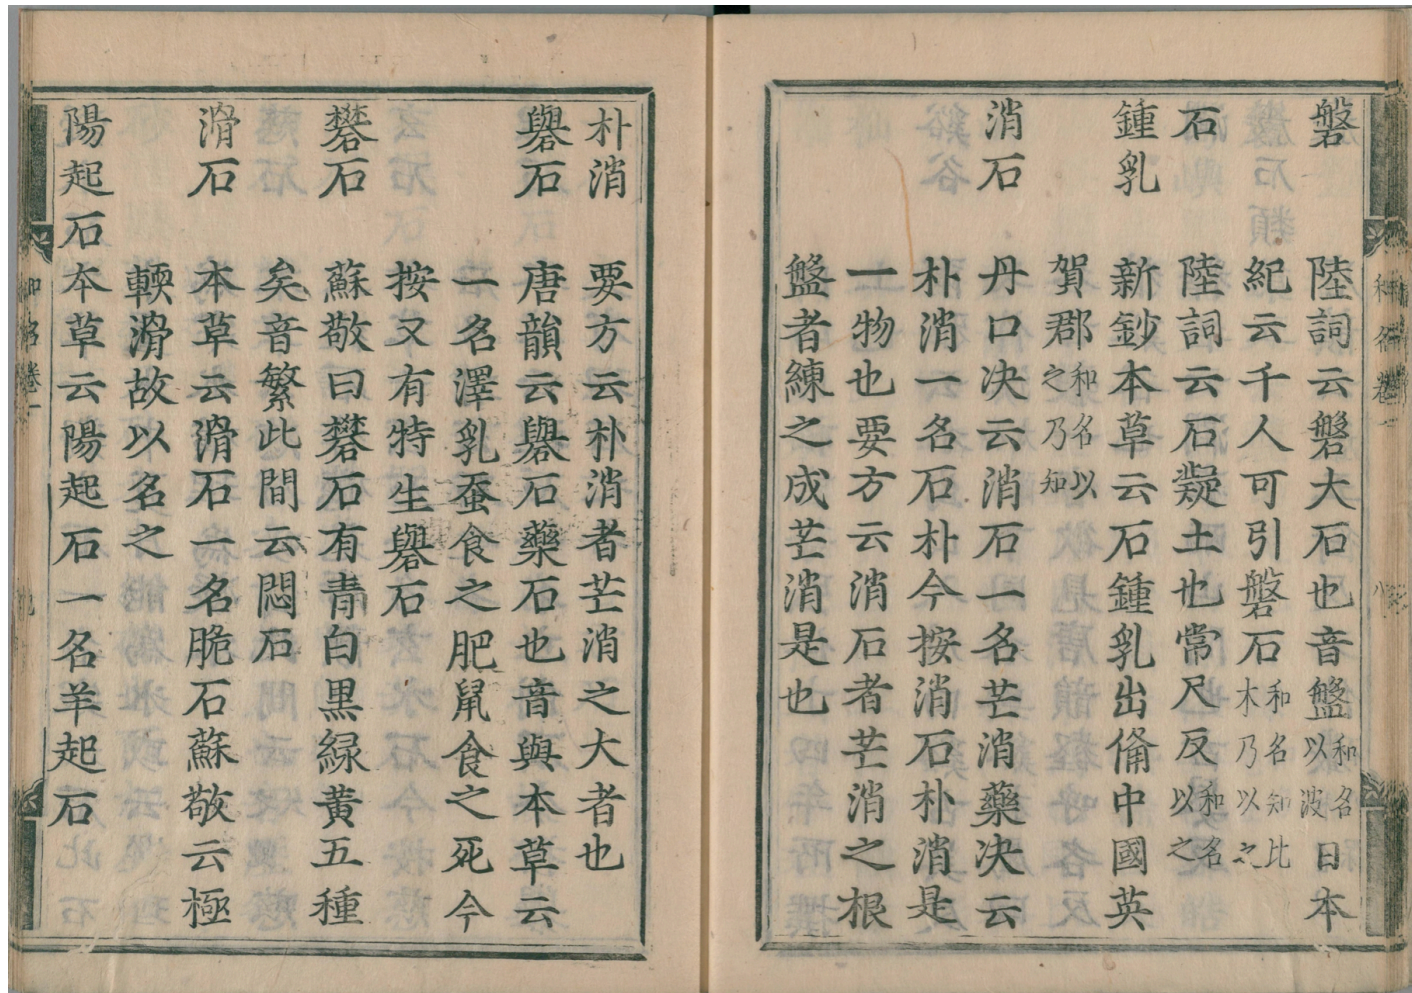 磐　陸詞云磐大石也音盤和名以波日本
紀云千人可引磐石和名知比木乃以之
石　陸詞云石凝土也常尺反和名以之
鍾乳　新鈔本草云石鍾乳出俻中國英
賀郡和名以之乃知
消石　丹口决云消石一名芒消藥决云
朴消一名石朴今按消石朴消是
一物也要方云消石者芒消之根
盤者練之成芒消是也
朴消　要方云朴消者芒消之大者也
礜石　唐韻云礜石藥石也音與本草云
一名澤乳蚕食之肥鼠食之死今
按又有特生礜石
礬石　蘇敬曰礬石有青白黒緑黄五種
矣音繁此間云悶石
滑石　本草云滑石一名脆石蘇敬云極
輭滑故以名之
陽起石　本草云陽起石一名羊起石